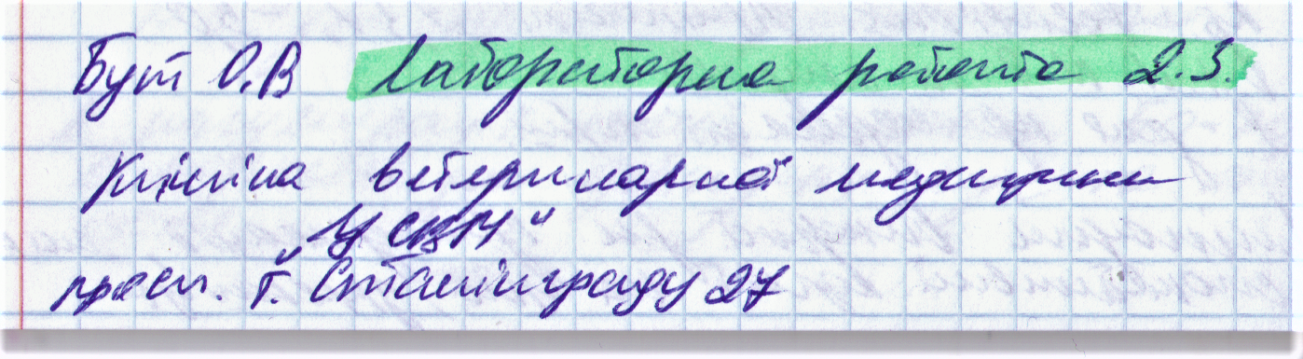 Бут О.В Лабораторна робота 2.3.
Клініка ветеринарної медицини
просп. Г. Сталінграду 27